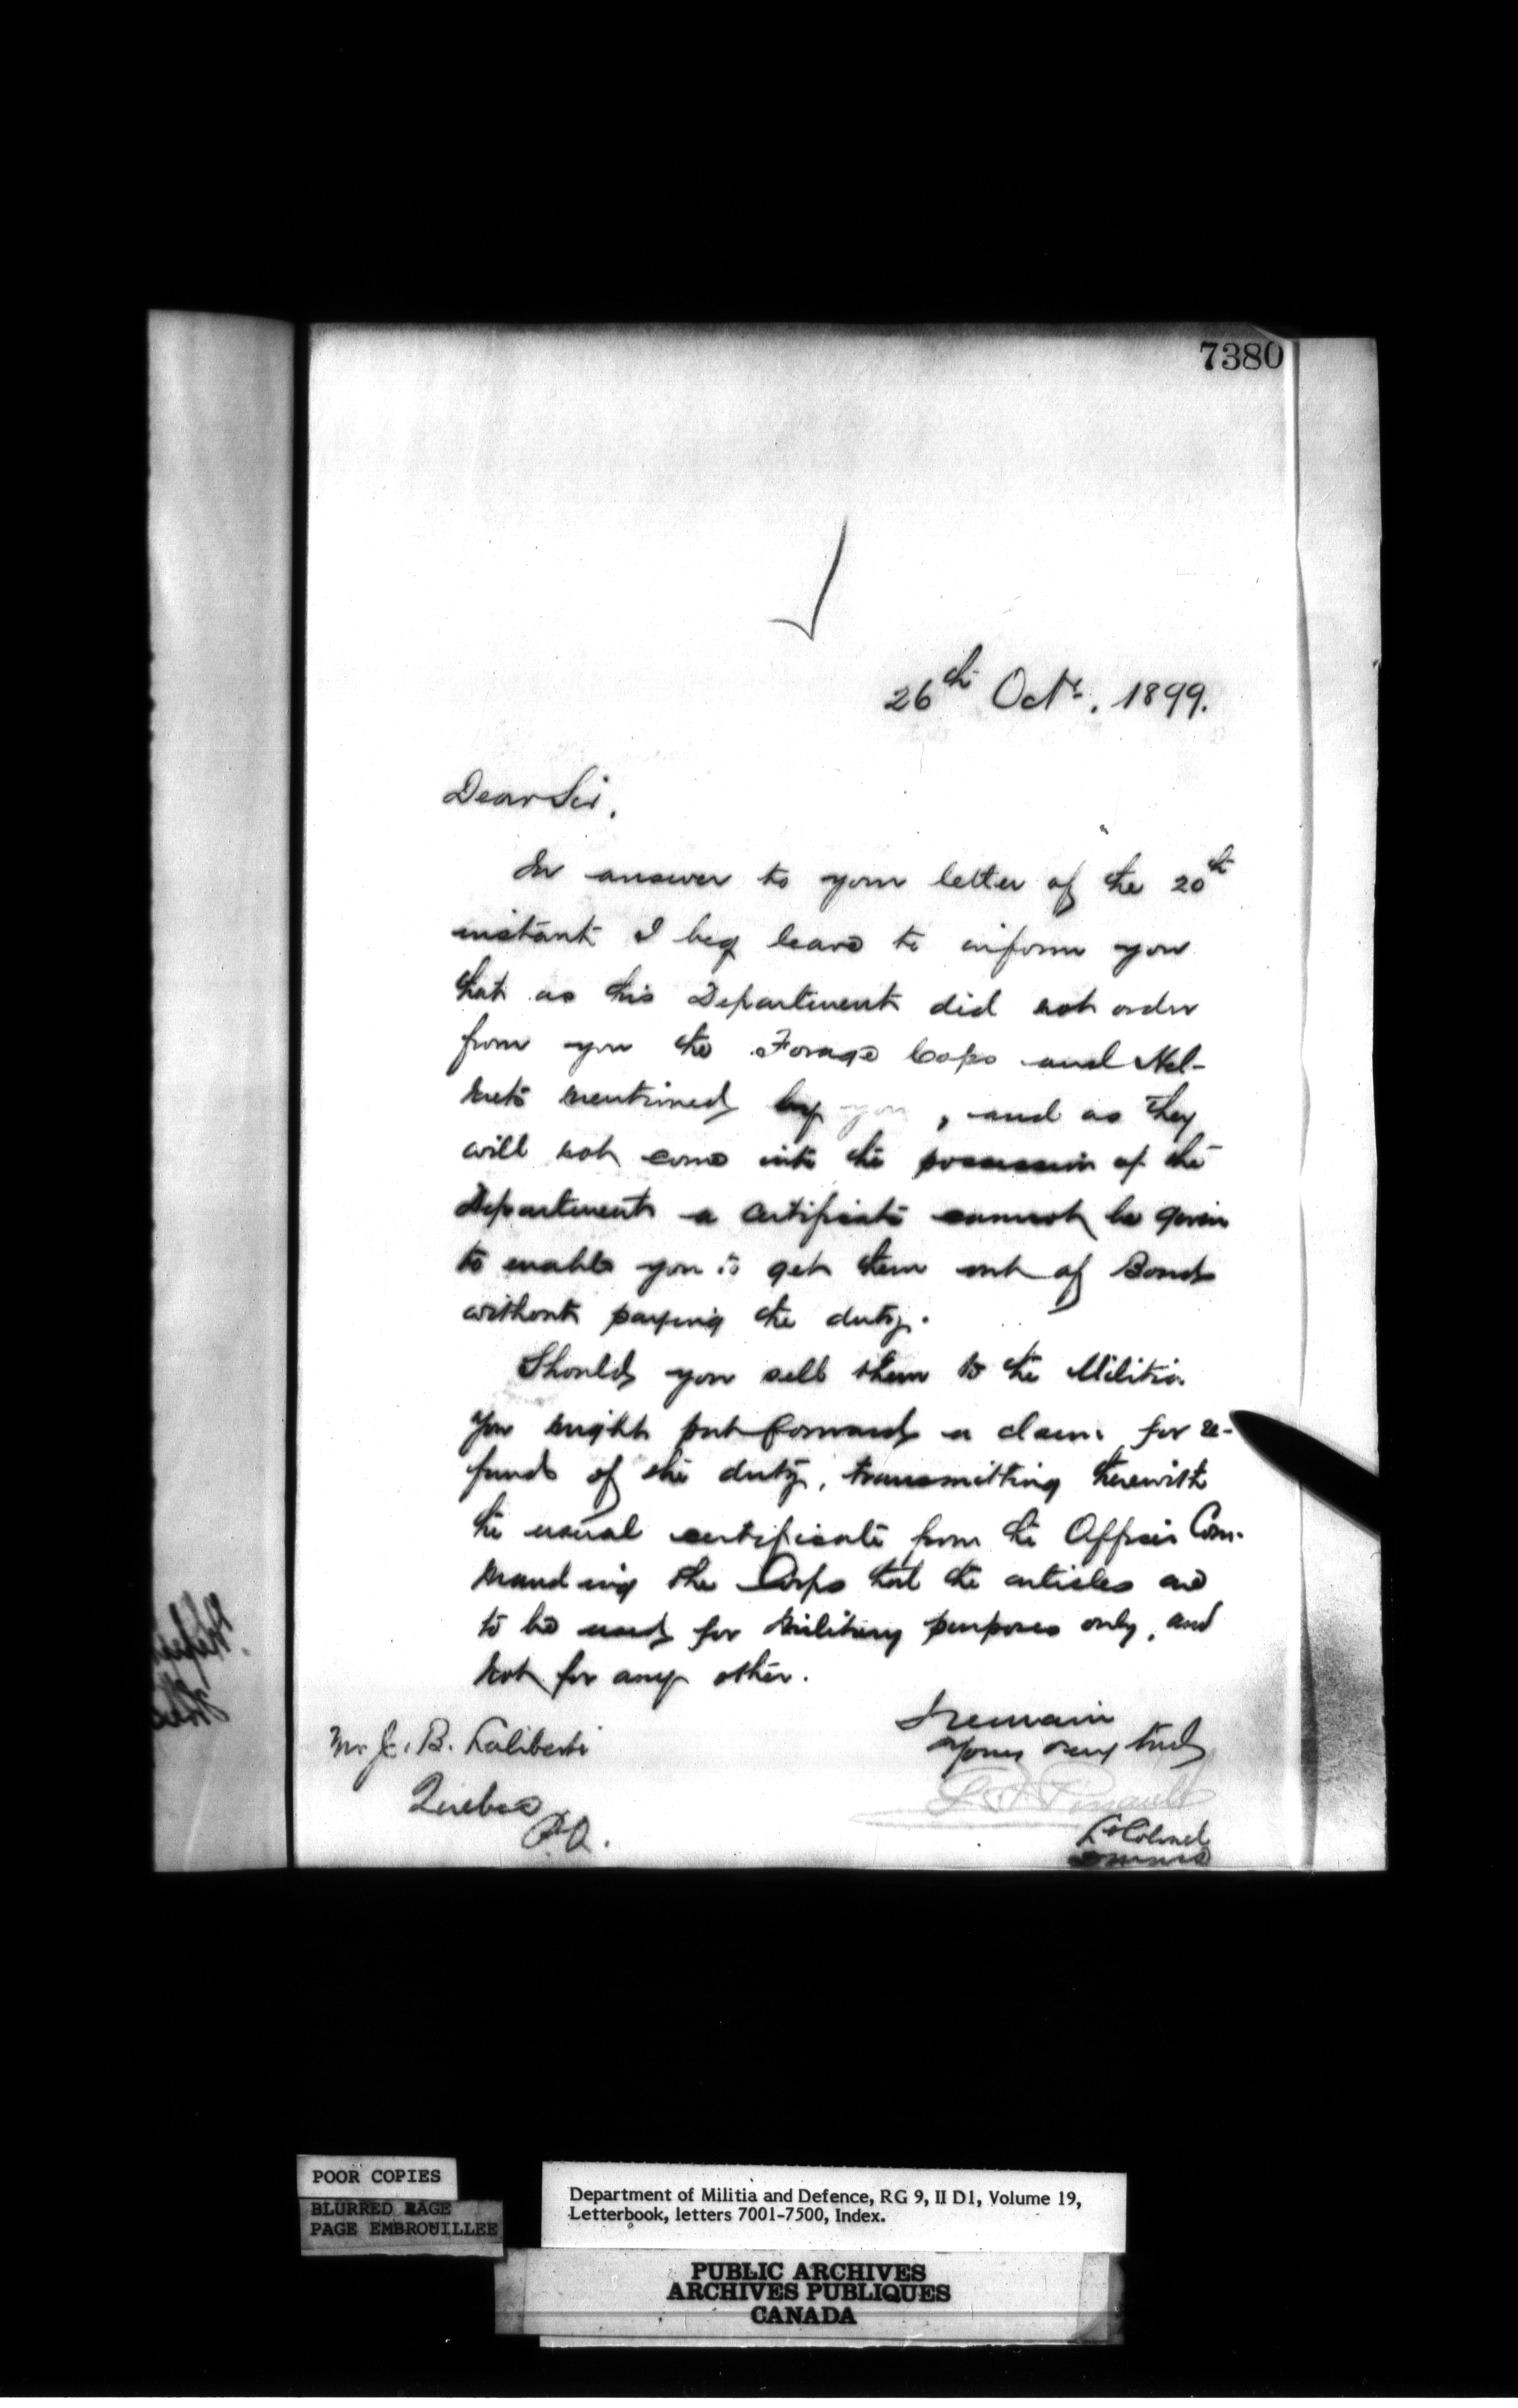 7380
26th Octr. 1899.
Dear Sir,
In answer to your letter of the 20th
instant I beg leave to inform you
that as this Department did not order
from you the Forage Caps and Hel-
mets mentioned by you, and as they
will not come into the possession of the
Department a certificate cannot be given
to enable you to get them out of Bond
without paying the duty.
Should you sell them to the Militia
you might put forward a claim for re-
fund of the duty, transmitting therewith
the usual certificate from the Officer Com-
manding the Corps that the articles are
to be used for Military purposes only, and
not for any other.
I remain
Yours very truly
Mr. J. B. Laliberté
L. F. Pinault
Quebec
P.Q.
Lt Colonel
POOR COPIES
BLURRED PAGE
PAGE EMBROUILLEE
Department of Militia and Defence, RG 9, II D1, Volume 19,
Letterbook, letters 7001-7500, Index.
PUBLIC ARCHIVES
ARCHIVES PUBLIQUES
CANADA